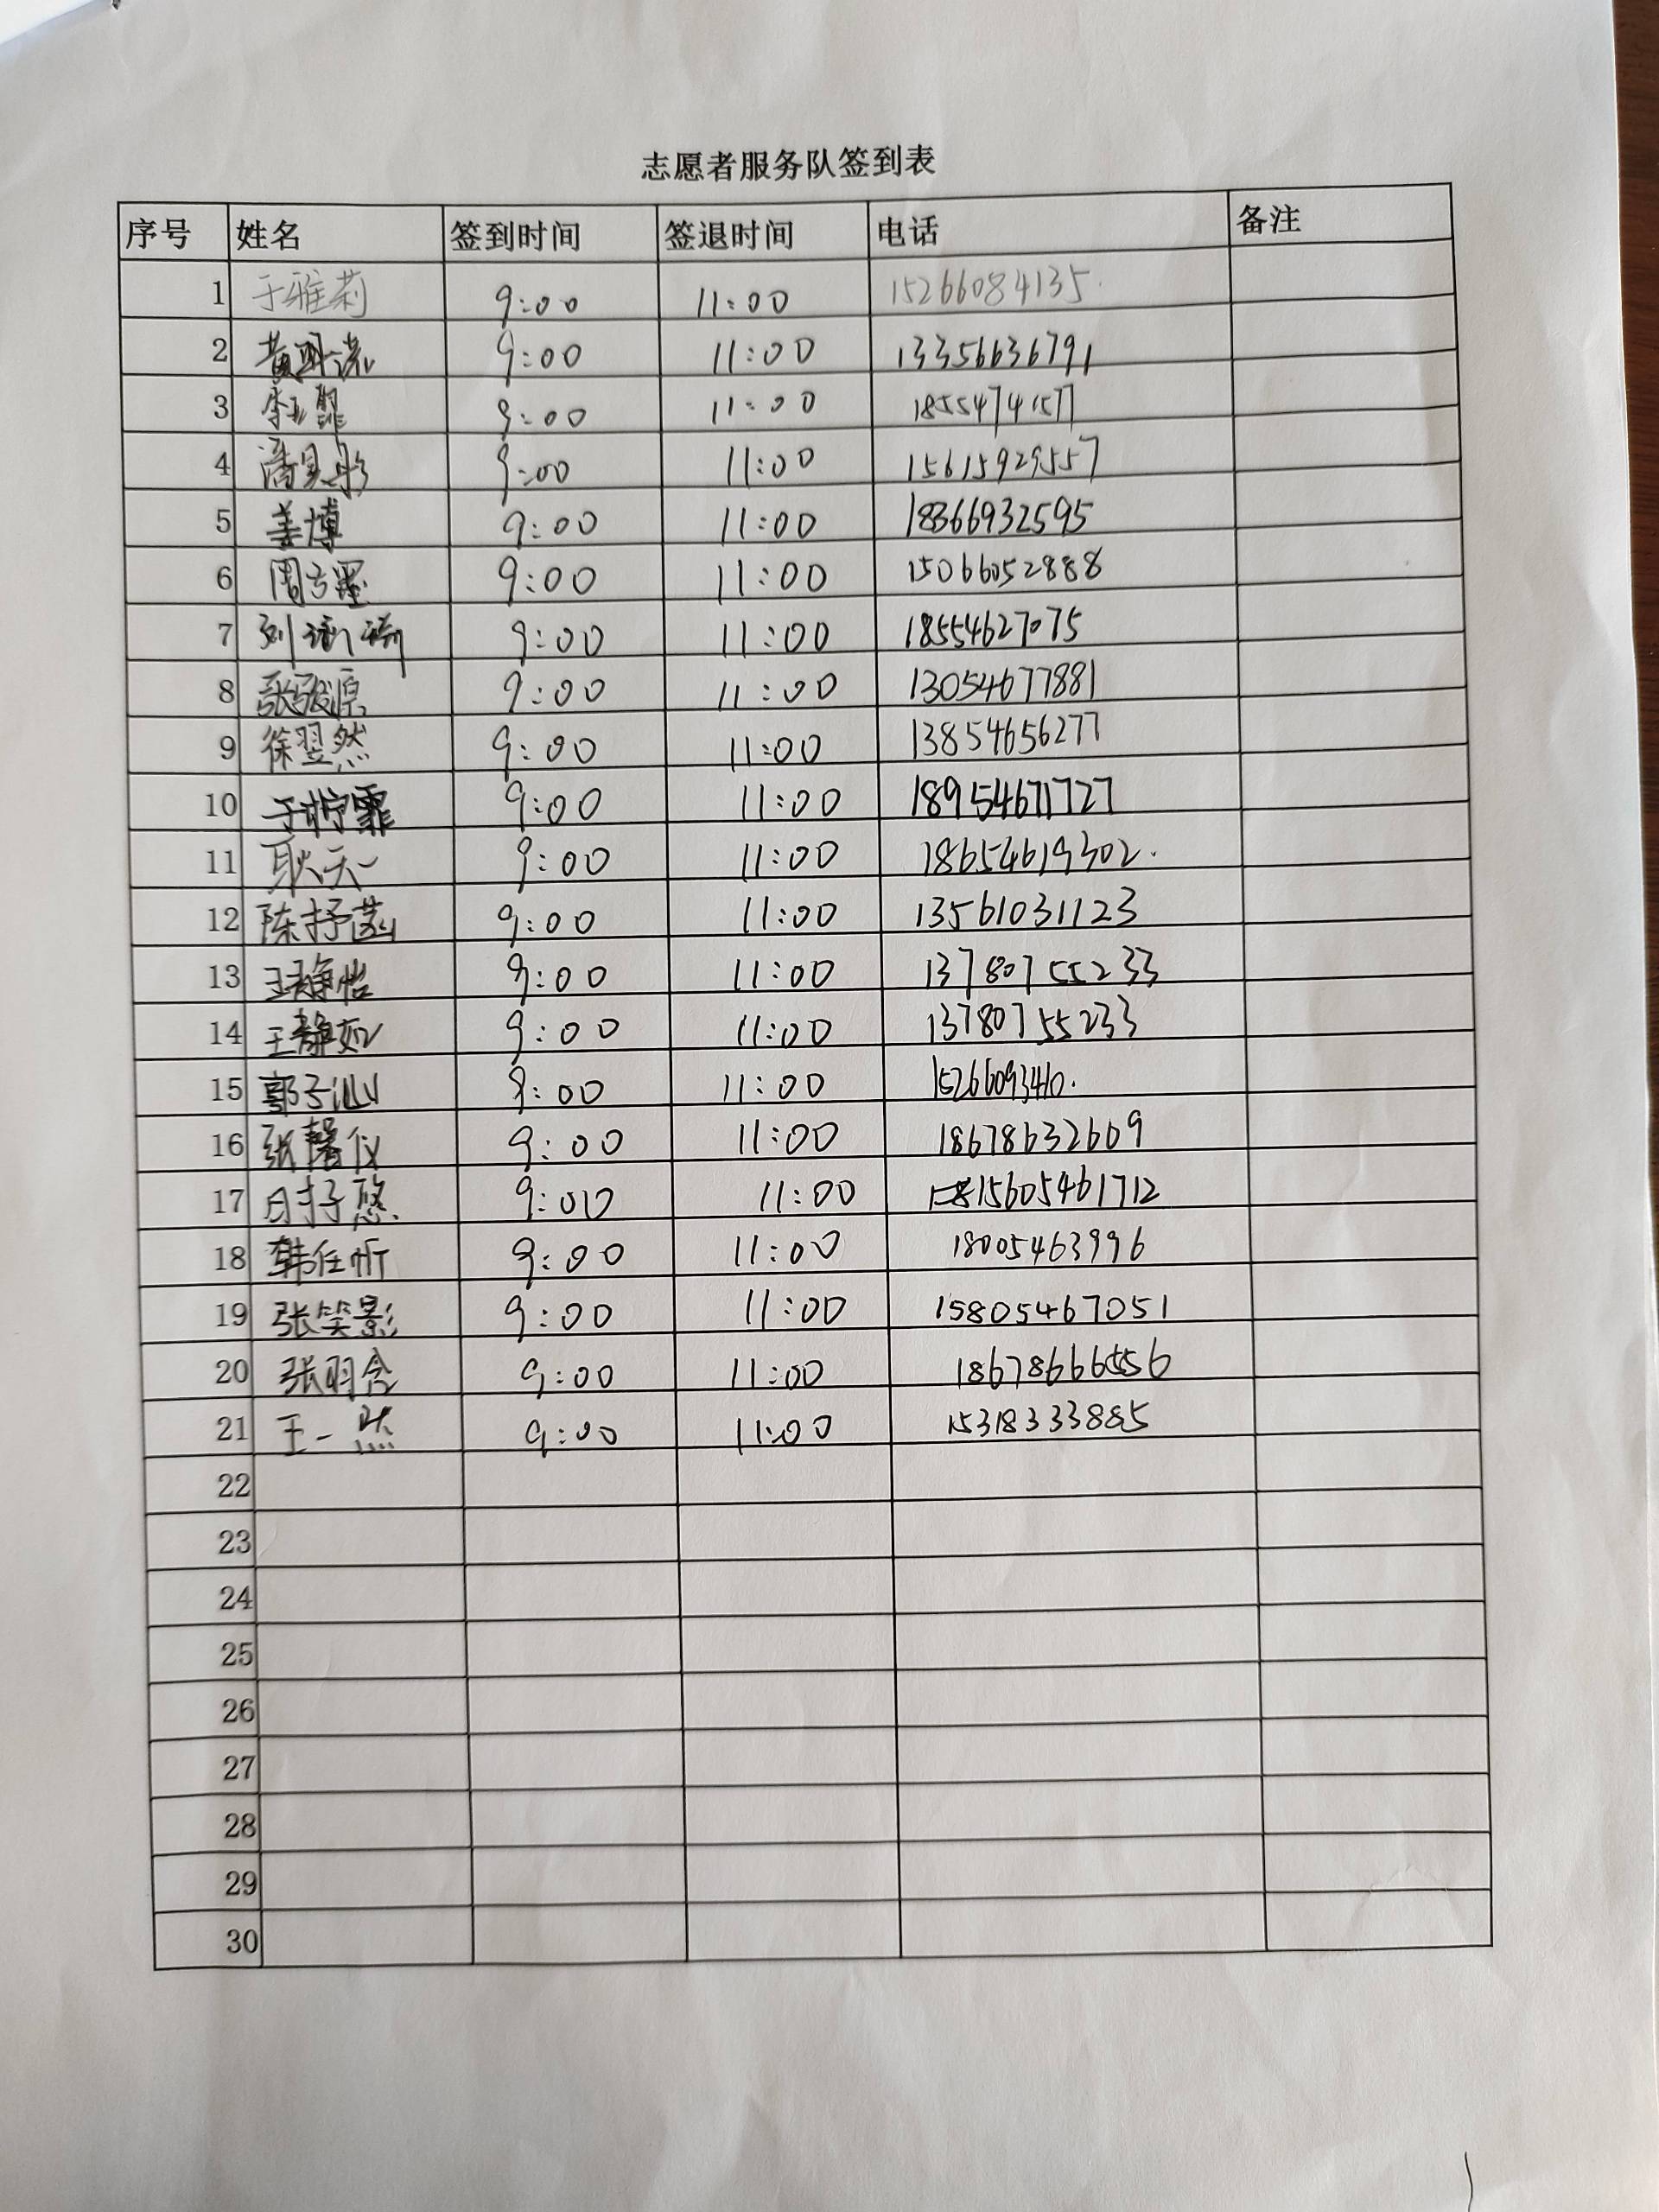 志愿者服务队签到表
序号 姓名 签到时间 签退时间 电话 备注
1 于雅莉 9:00 11:00 15266084135
2 9:00 11:00 13356636791
3 9:00 11:00 18554741577
4 9:00 11:00 15615929557
5 姜博 9:00 11:00 18366932595
6 9:00 11:00 15066052888
7 9:00 11:00 18554627075
8 9:00 11:00 13054677881
9 徐翌然 9:00 11:00 13854656277
10 9:00 11:00 18954671727
11 耿天一 9:00 11:00 18654619302
12 陈抒菡 9:00 11:00 13561031123
13 王静怡 9:00 11:00 13780755233
14 王静如 9:00 11:00 13780755233
15 郭子汕 9:00 11:00 15266093410
16 张馨仪 9:00 11:00 18678632609
17 9:00 11:00 15605461712
18 韩任忻 9:00 11:00 18005463996
19 张笑影 9:00 11:00 15805467051
20 张羽含 9:00 11:00
21 王一然 9:00 11:00 15318333885
22
23
24
25
26
27
28
29
30